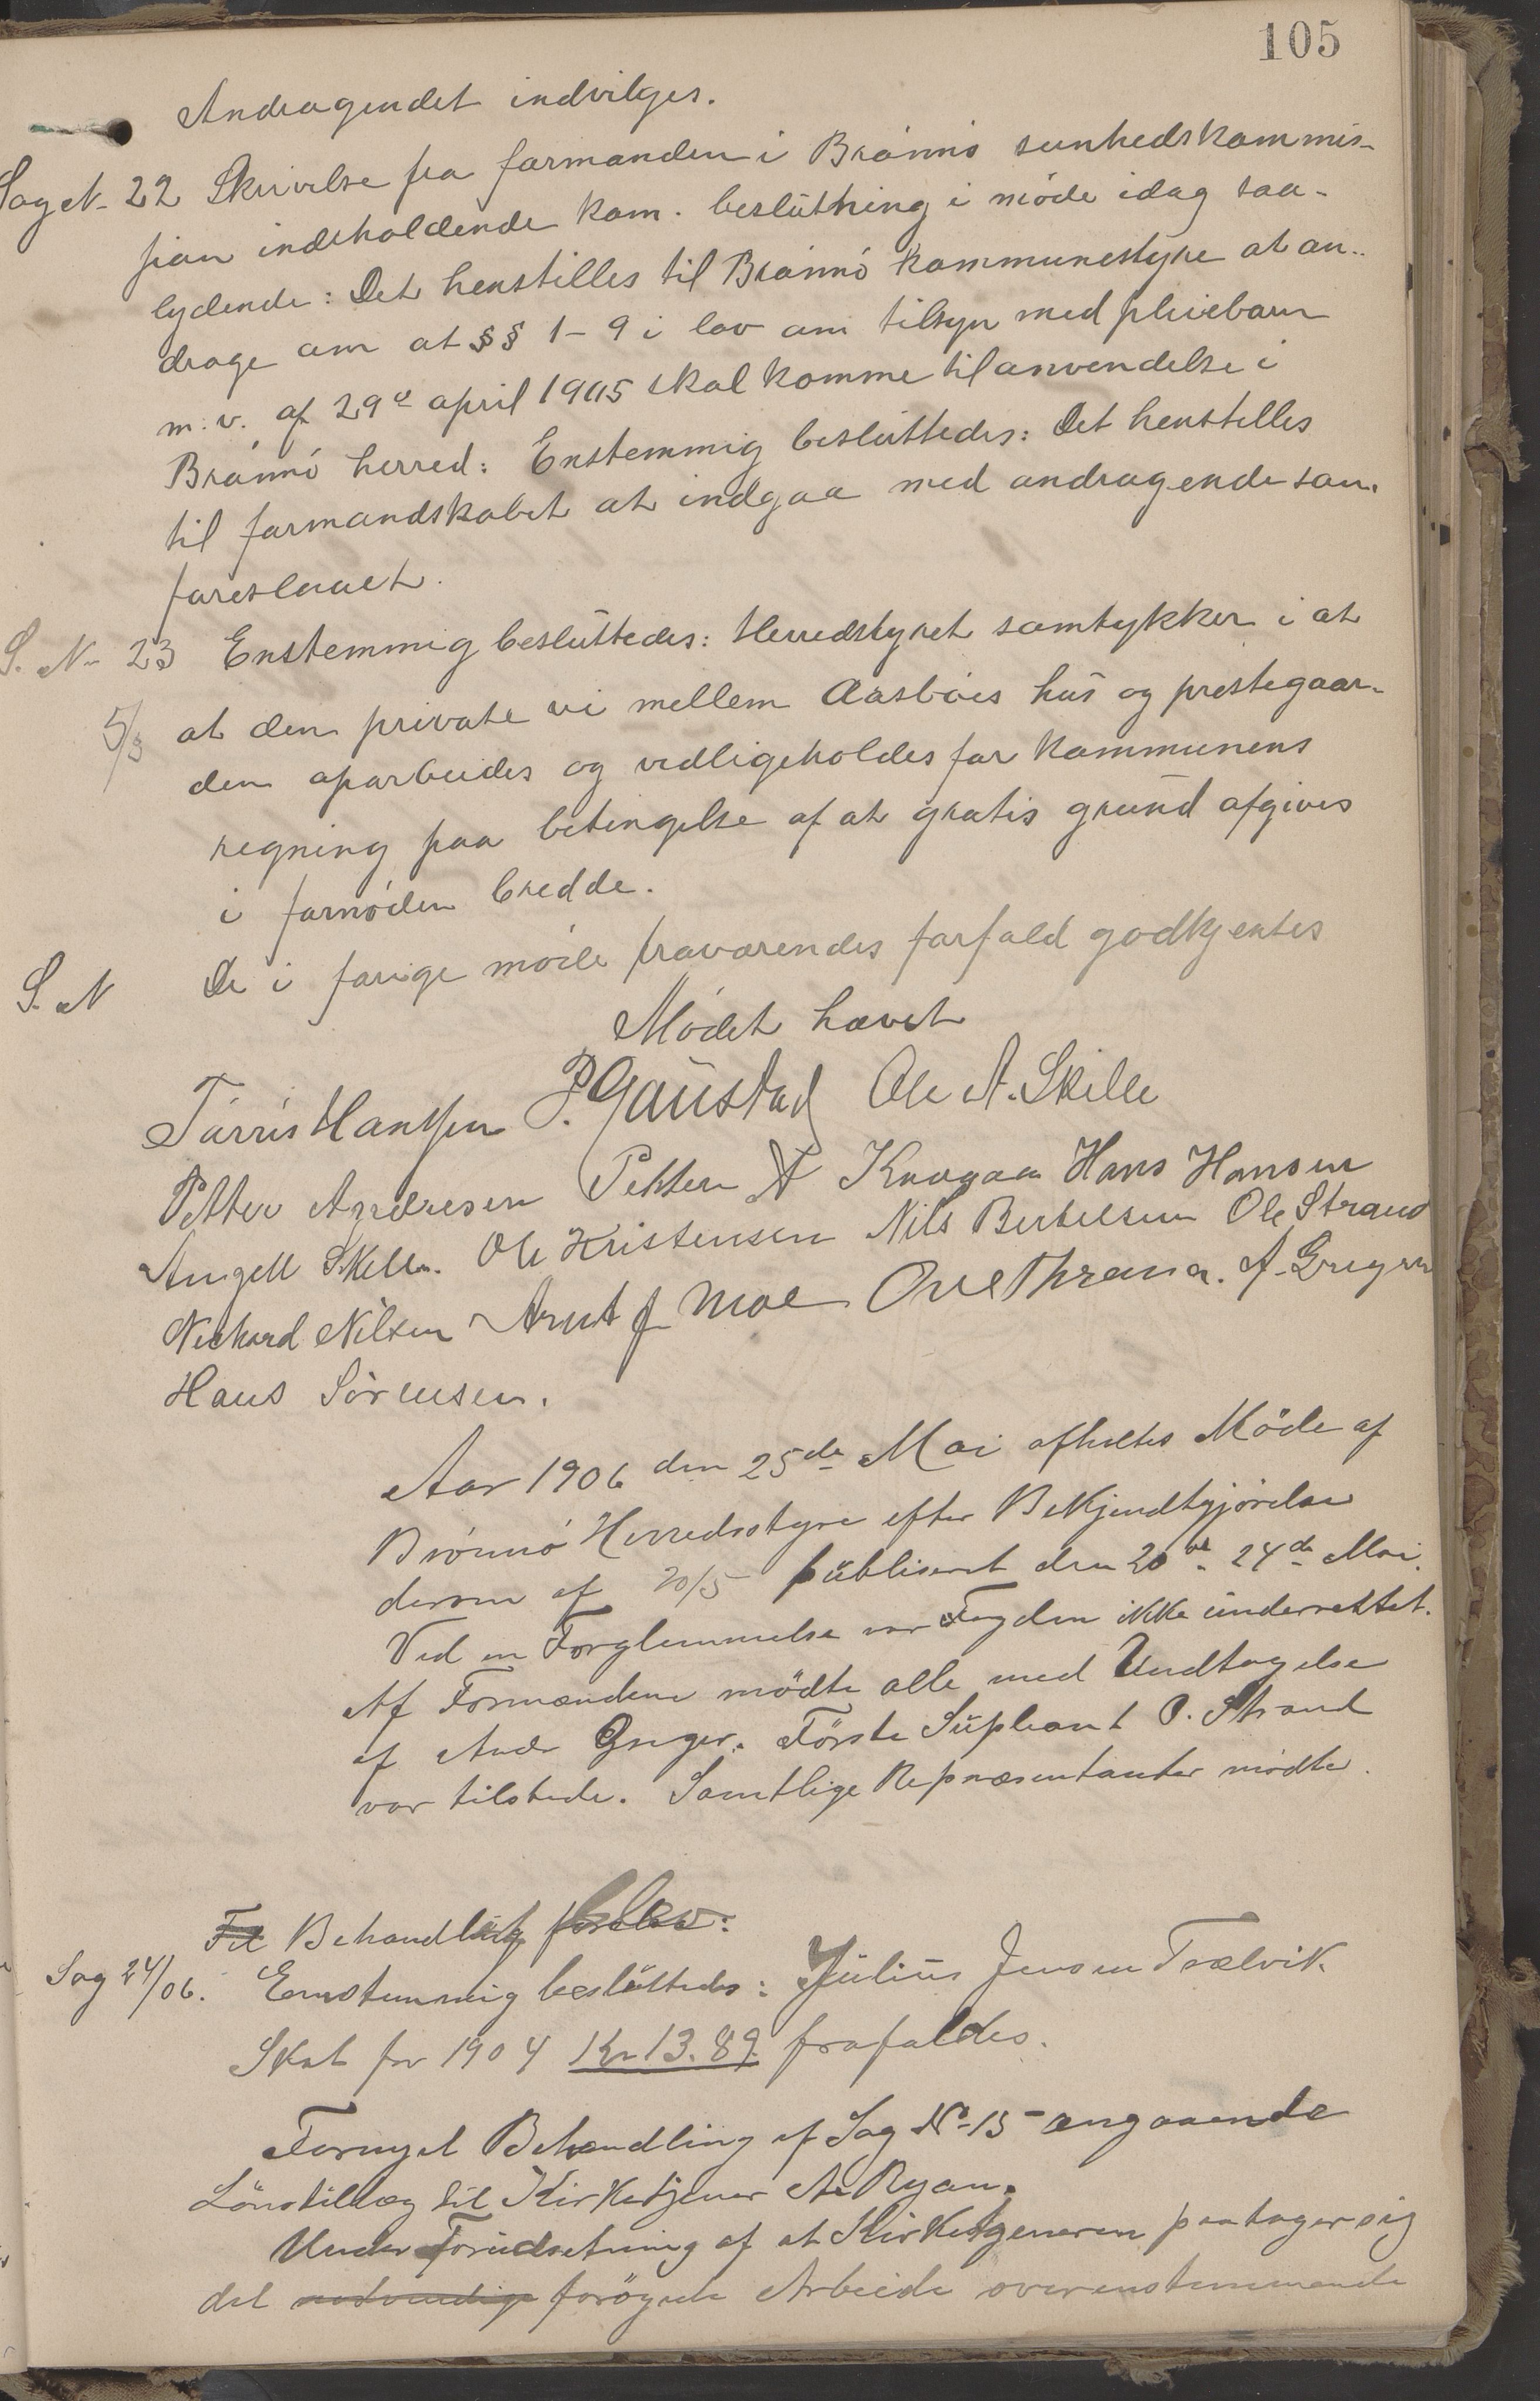 105
Andragendet indvilges.
Sag N. 22 Skrivelse fra formanden i Brønnø sunhedskommis-
sion indeholdende kom. beslutning i møde idag saa-
lydende: Det henstilles til Brønnø kommunestyre at an-
drage om at §§ 1-9 i lov om tilsyn med pleiebarn
m.v. af 29de april 1905 skal komme til anvendelse i
Brønnø herred: Enstemmig besluttedes: Det henstilles
til formandskabet at indgaa med andragende som
foreslaaet.
S. N. 23 Enstemmig besluttedes: Herredstyret samtykker i at
5/3 at den private vei mellem Aasbøes hus og prestegaar-
den oparbeides og vedligeholdes for kommunens
regning paa betingelse af at gratis grund afgives
i fornøden bredde.
S. N De i forige møde fraværendes forfald godkjentes
Mødet hævet
Tørris Hanssen P. Gaustad Ole A. Skille
Petter Andresen Petter A Knogaa Hans Hansen
Angell Skille. Ole Kristensen Nils Bertelsen Ole Strand
Richard Nilsen Arnt J Moe Ove Thrana. A. Greger
Hans Sørensen.
Aar 1906 den 25de Mai afholtes Møde af
Brønnø Herredsstyre efter Bekjendtgjørelse
derom af 20/5 publiseret den 20de - 24de Mai.
Ved en Forglemmelse var Fogden ikke underrettet.
Af Formændene mødte alle med Undtagelse
af Andr Greger. Første Supleant O. Strand
var tilstede. Samtlige Repræsentanter mødte.
Til Behandling forelaa:
Sag 24/06. Enstemmig besluttedes: Julius Jensen Trælvik
Skat for 1904 Kr 13.89 frafaldes.
Fornyet Behandling af Sag No 15 angaaende
Lønstillæg til Kirketjener A. Ryan.
Under Forudsetning af at Kirketjeneren paatager sig
det nødvendige forøgede Arbeide overenstemmende